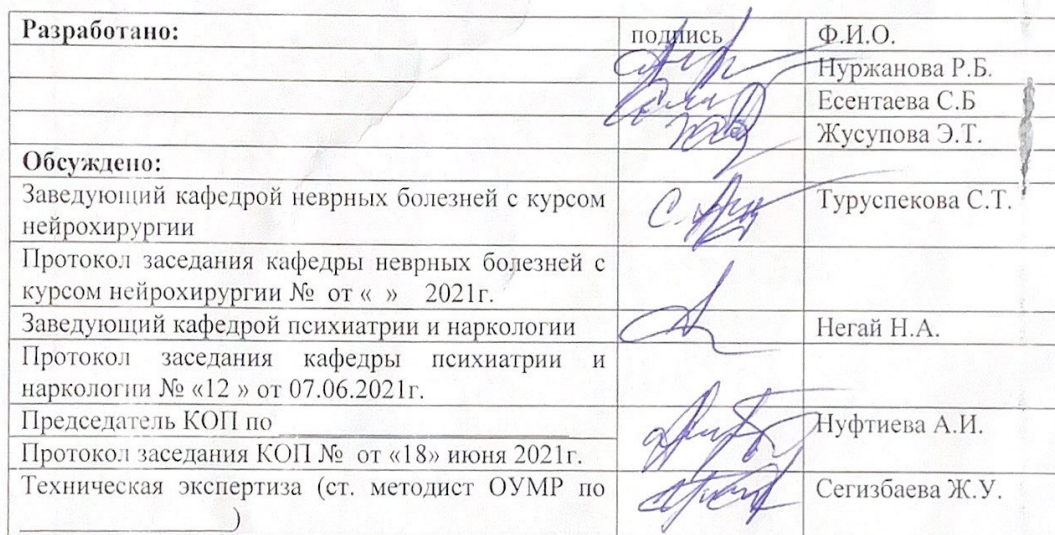 Разработано: подпись Ф.И.О.
Нуржанова Р.Б.
Есентаева С.Б
Жусупова Э.Т.
Обсуждено:
Заведующий кафедрой неврных болезней с курсом Туруспекова С.Т.
нейрохирургии
Протокол заседания кафедры неврных болезней с
курсом нейрохирургии № от « » 2021г.
Заведующий кафедрой психиатрии и наркологии Негай Н.А.
Протокол заседания кафедры психиатрии и
наркологии № «12 » от 07.06.2021г.
Председатель КОП по ____________________________ Нуфтиева А.И.
Протокол заседания КОП № от «18» июня 2021г.
Техническая экспертиза (ст. методист ОУМР по Сегизбаева Ж.У.
____________________)